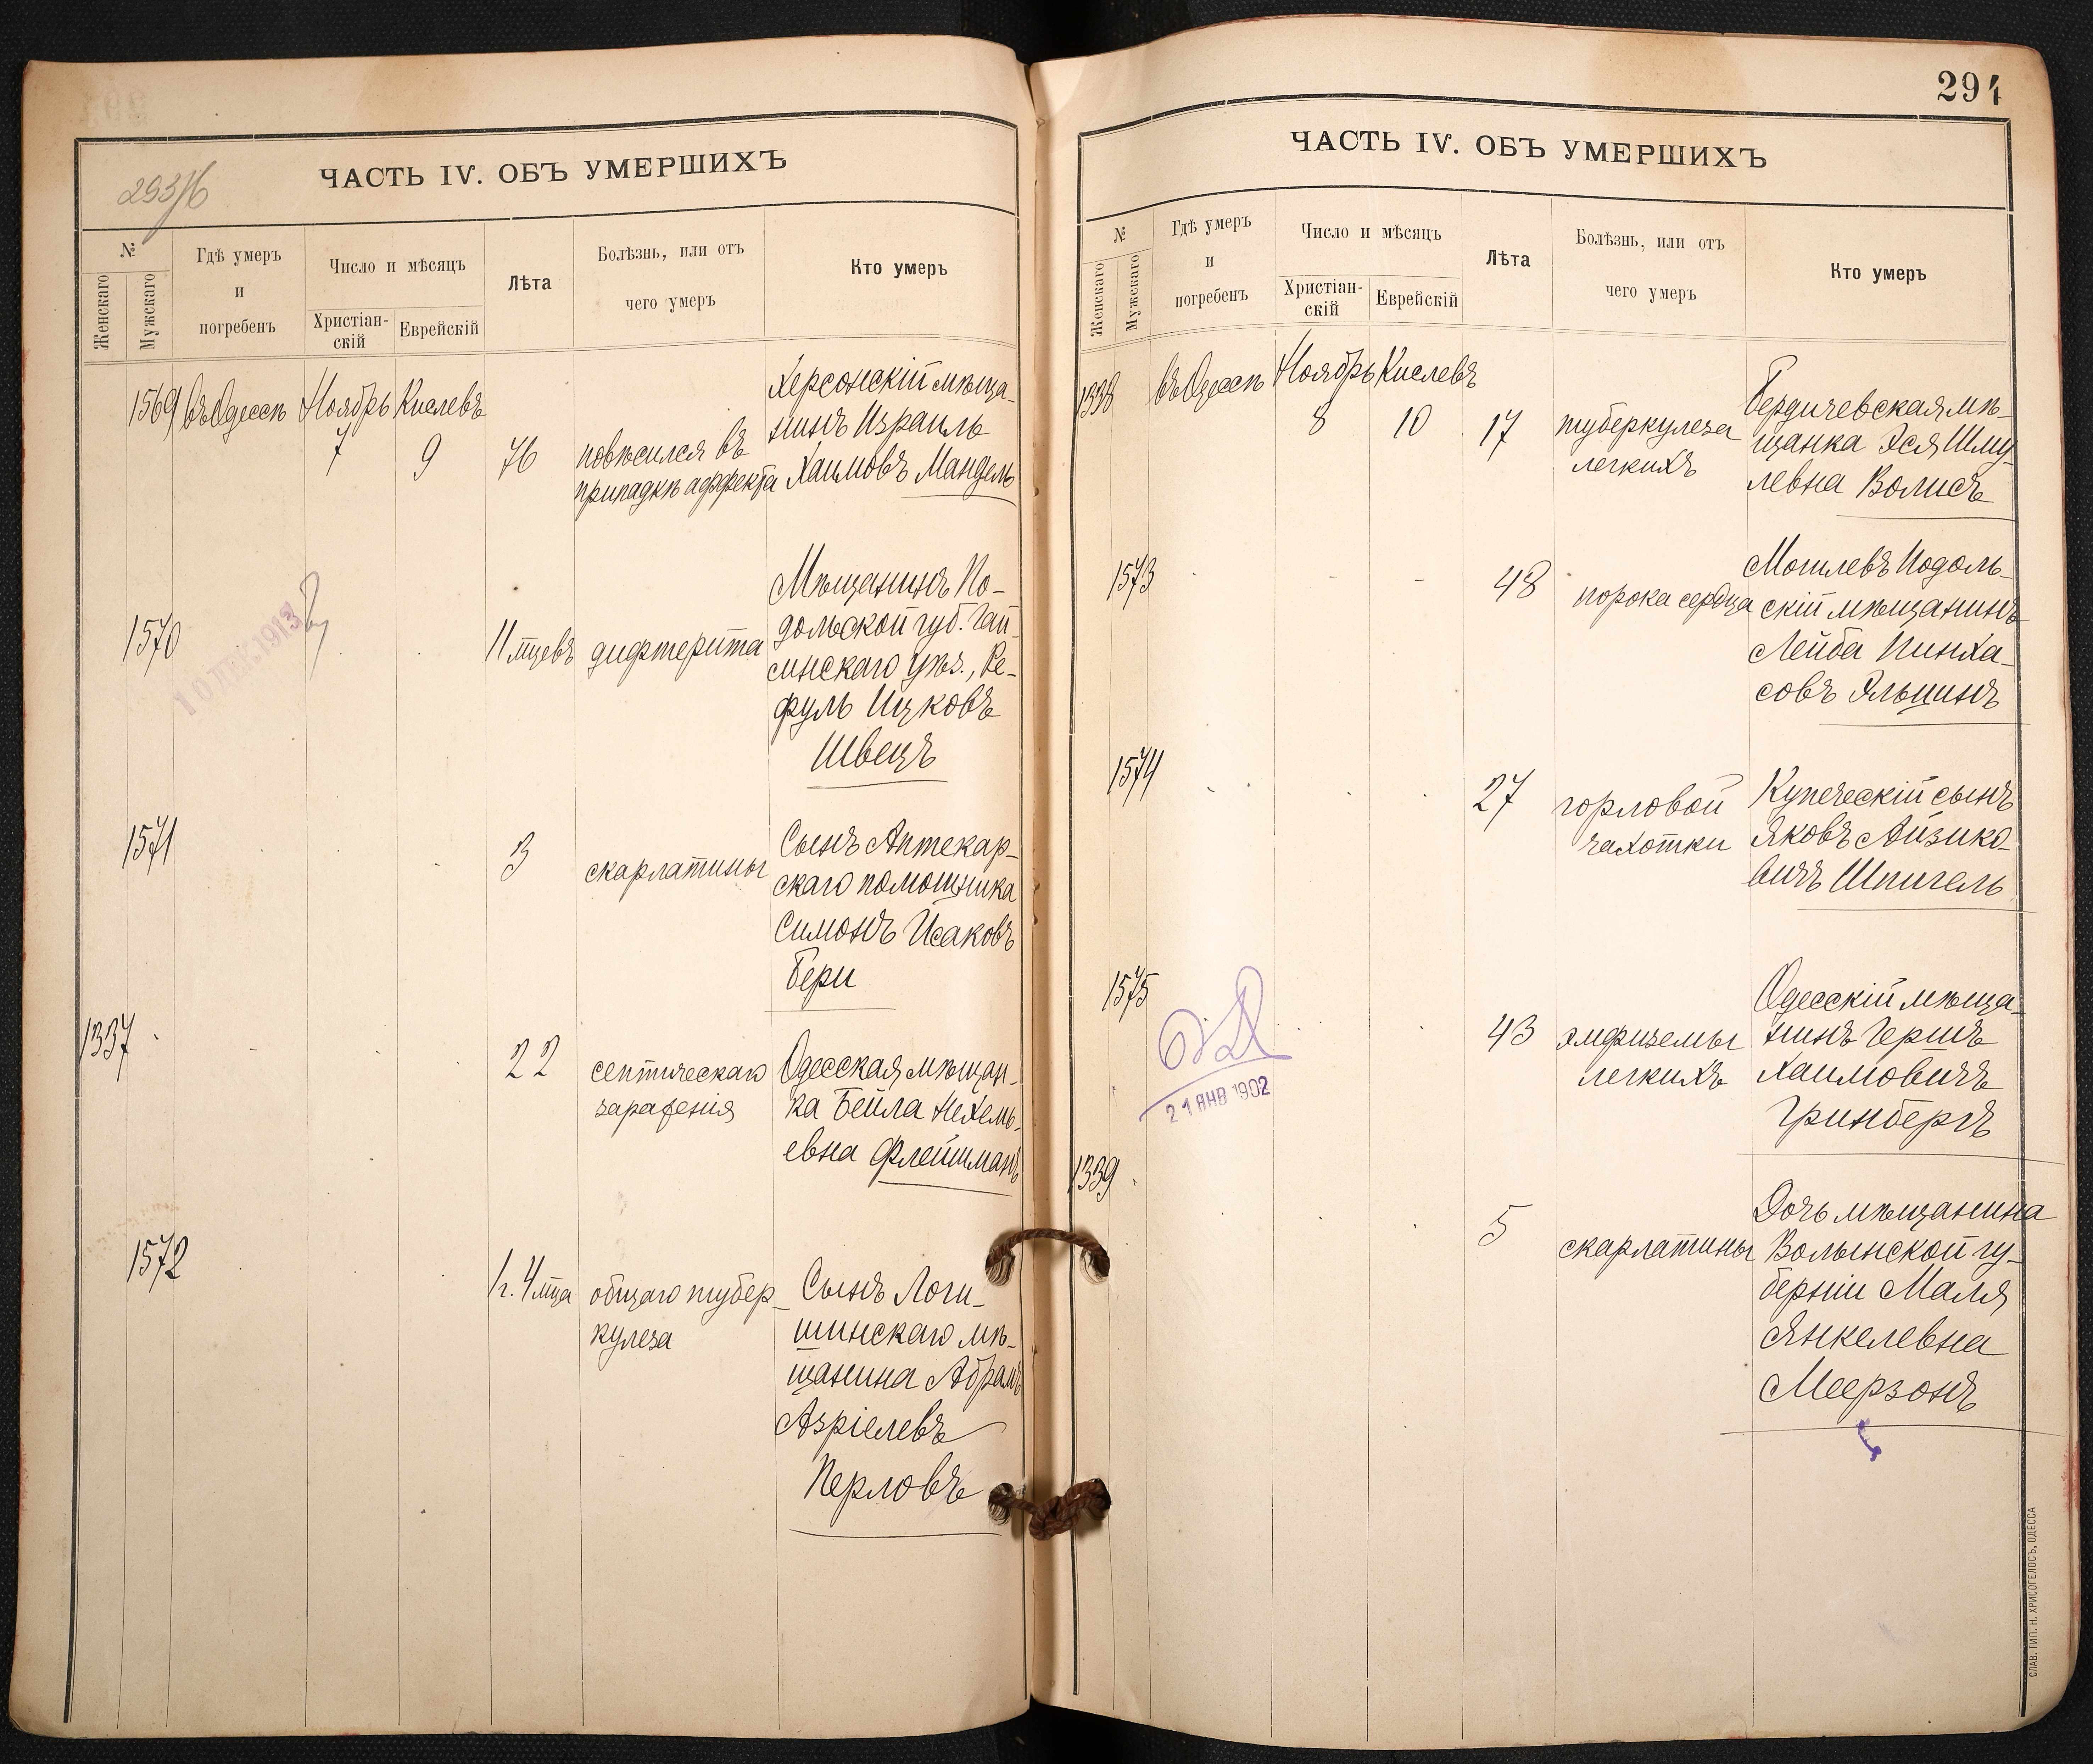 293/б
ЧАСТЬ IV. ОБЪ УМЕРШИХЪ
№
Женскаго
Мужскаго
Гдѣ умеръ
и
погребенъ
Число и мѣсяцъ
Христіан-
скій
Еврейскій
Лѣта
Болѣзнь, или отъ
чего умеръ
Кто умеръ
1569 въ Одессѣ Ноябрь Кислевъ
7 9 76
повѣсился въ
припадкѣ аффекта
Херсонскій мѣща-
нинъ Израиль
Хаимовъ Мандель
10 ДЕК 1913
1570
11 мцевъ дифтерита
Мѣщанинъ По-
дольской губ. Гай-
синскаго уѣз., Ре-
фуль Ицковъ
Швецъ
1571
3 скарлатины
Сынъ Аптекар-
скаго помощника
Симонъ Исаковъ
Бери
1337
22 септическаго
зараженія
Одесская мѣщан-
ка Бейла Нехемь-
евна Флейшманъ
1572
1 г. 4 мца общаго тубер-
кулеза
Сынъ Логи-
шинскаго мѣ-
щанина Абрамъ
Азріелевъ
Перловъ
294
ЧАСТЬ IV. ОБЪ УМЕРШИХЪ
№
Женскаго
Мужскаго
Гдѣ умеръ
и
погребенъ
Число и мѣсяцъ
Христіан-
скій
Еврейскій
Лѣта
Болѣзнь, или отъ
чего умеръ
Кто умеръ
1338 въ Одессѣ Ноябрь Кислевъ
8 10 17
туберкулеза
легкихъ
Бердичевская мѣ-
щанка Эся Шму-
левна Волисъ
1573
48 порока сердца
Могилевъ Подоль-
скій мѣщанинъ
Лейба Пинха-
совъ Яльцинъ
1574
27 горловой
чахотки
Купеческій сынъ
Яковъ Айзико-
вичъ Шпигель
1575
21 ЯНВ 1902
43 эмфиземы
легкихъ
Одесскій мѣща-
нинъ Гершъ
Хаимовичъ
Гринбергъ
1339
5 скарлатины
Дочь мѣщанина
Волынской гу-
берніи Маля
Янкелевна
Меерзонъ
СЛАВ. ТИП. Н. ХРИСОГЕЛОСЪ, ОДЕССА